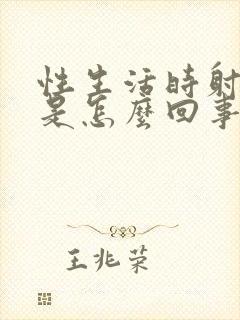 性生活時射
是怎麼回事
王兆荣